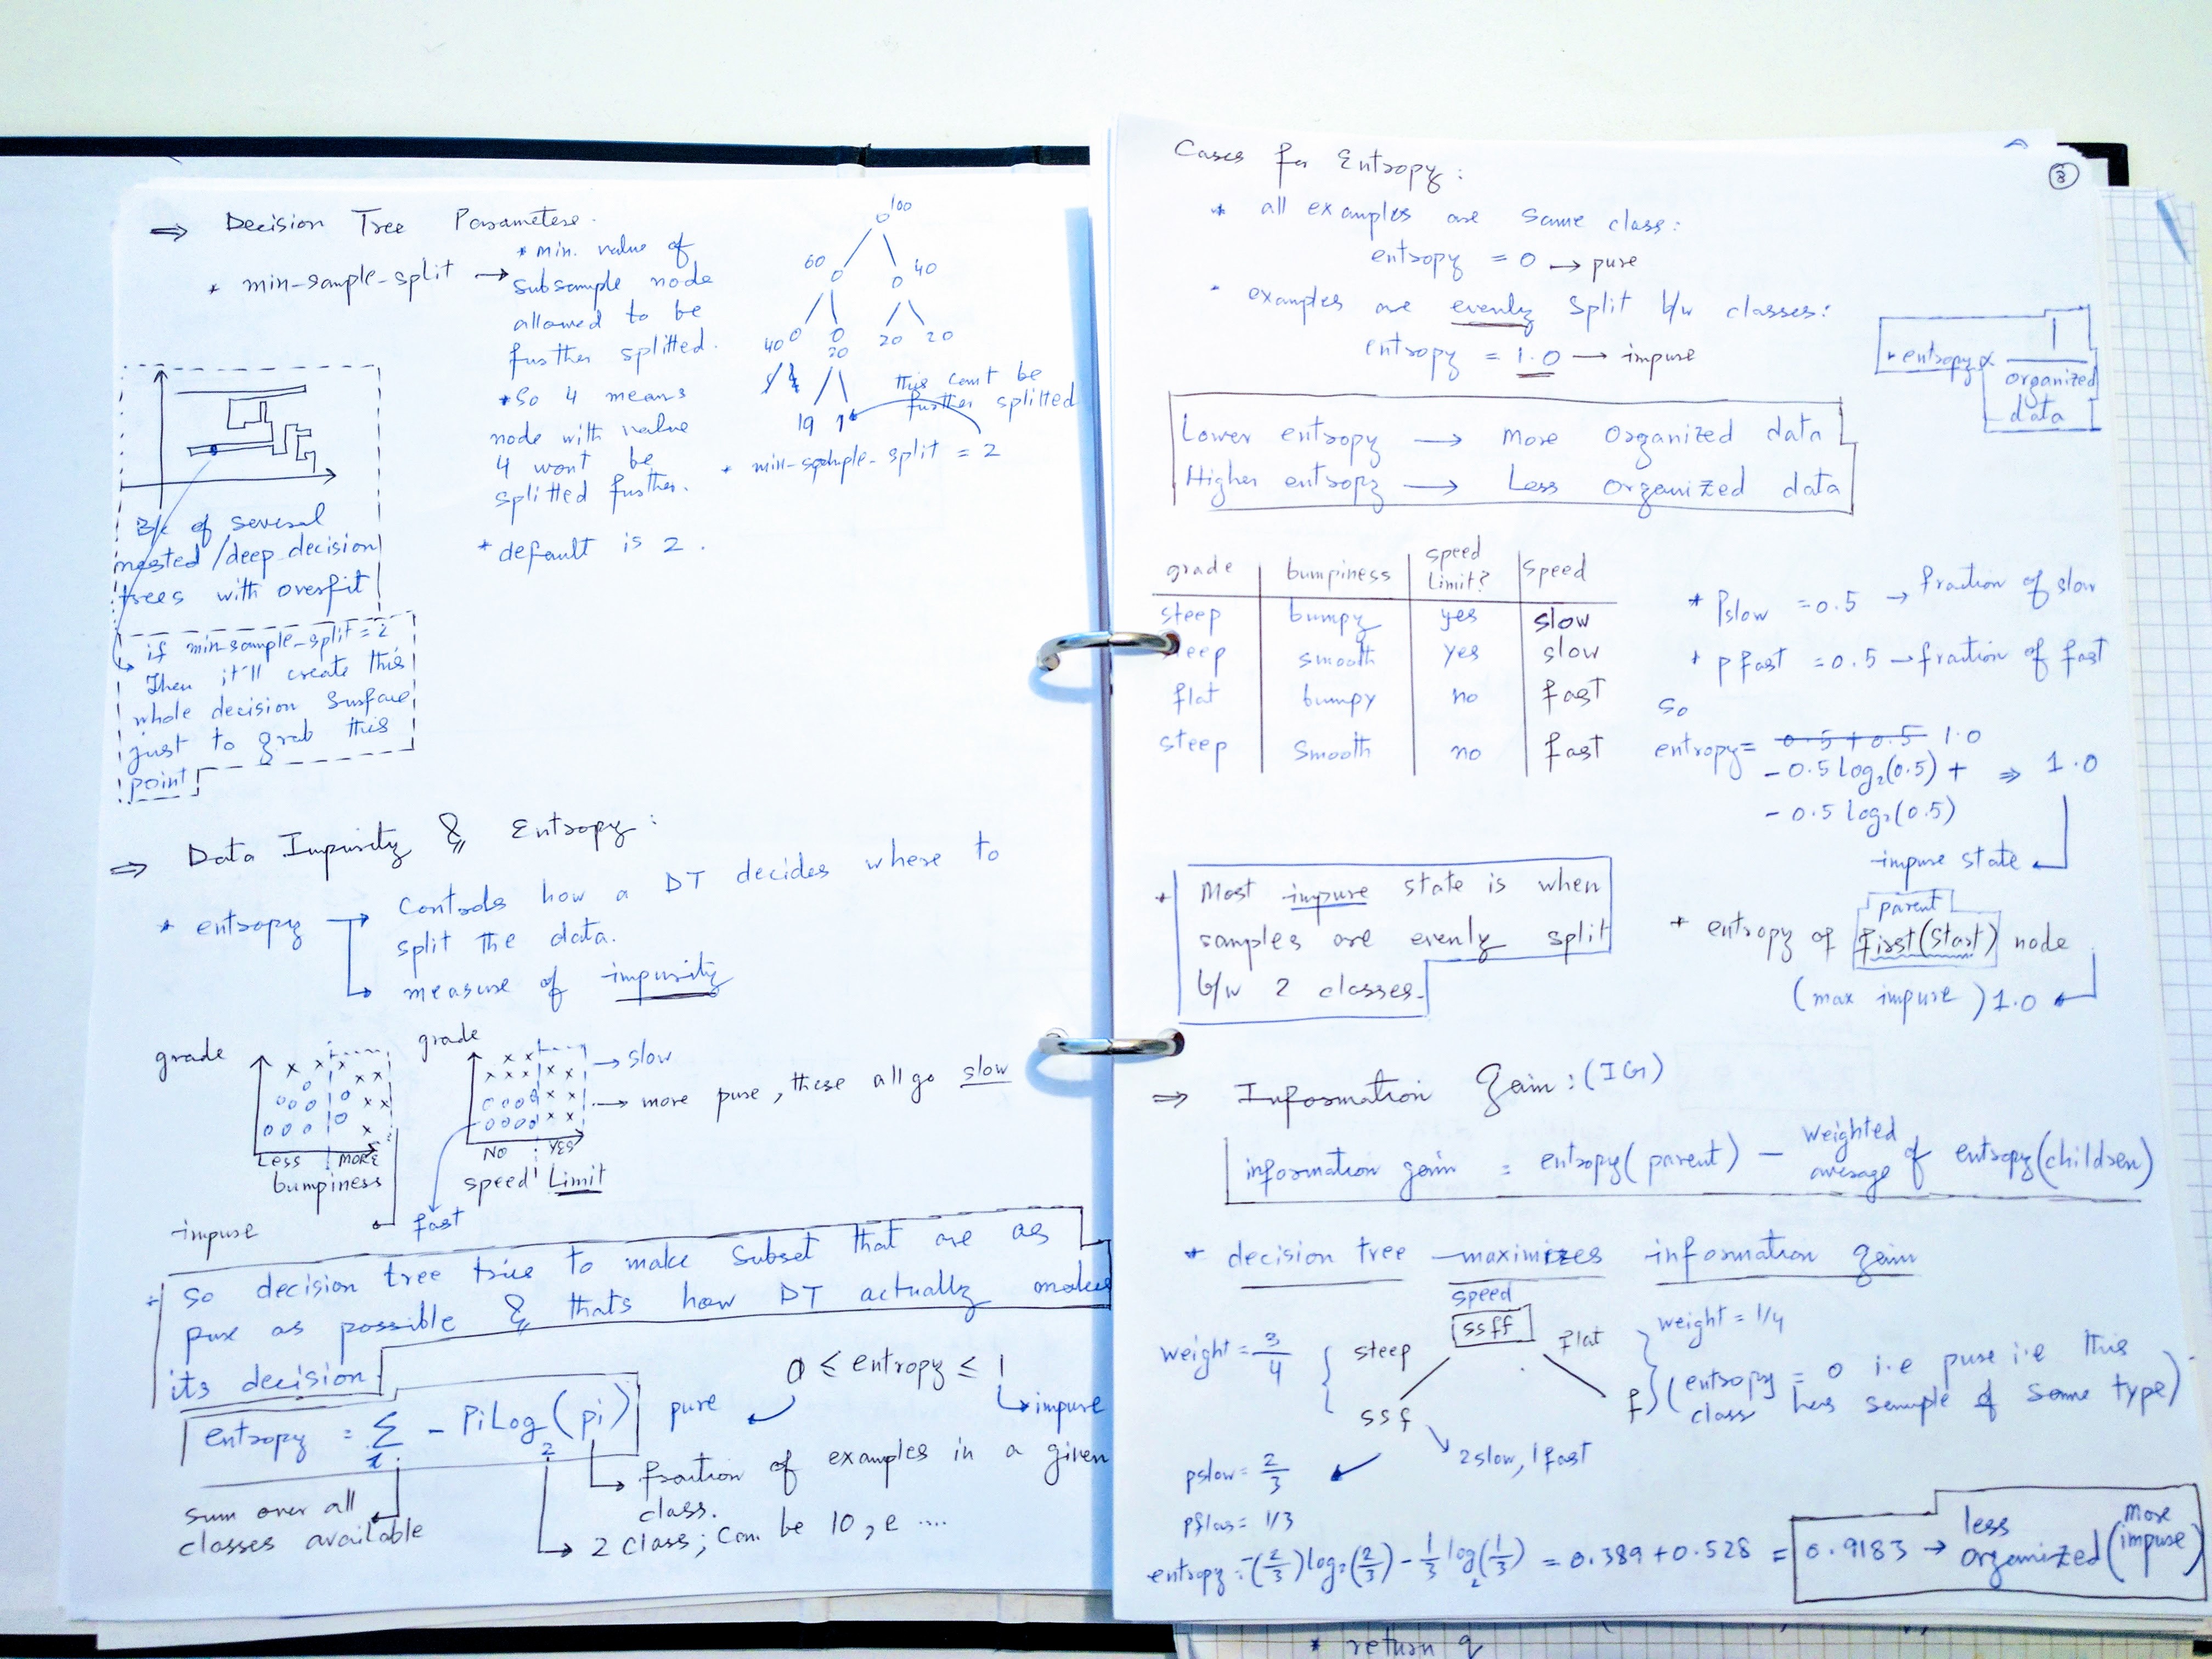 ⇒ Decision Tree Parameters.
* min-sample-split → * min. value of
subsample node
allowed to be
further splitted.
* So 4 means
node with value
4 wont be
splitted further.
* default is 2.
100
60 40
40 20 20 20
19 1
this cant be
further splitted
* min-sample-split = 2
B/c of several
nested/deep decision
trees with overfit
if min-sample-split = 2
Then it'll create this
whole decision surface
just to grab this
point
⇒ Data Impurity & Entropy:
* entropy → Controls how a DT decides where to
split the data.
→ measure of impurity
grade
Less MORE
bumpiness
impure
grade
→ slow
→ more pure, these all go slow
NO YES
speed Limit
fast
* So decision tree tries to make subset that are as
pure as possible & thats how DT actually makes
its decision
0 ≤ entropy ≤ 1
pure
impure
entropy = Σi - Pi Log2 (pi)
fraction of examples in a given
class.
sum over all
classes available
→ 2 class; can be 10, e ....
3
Cases for Entropy:
* all examples are same class:
entropy = 0 → pure
* examples are evenly split b/w classes:
entropy = 1.0 → impure
* entropy ∝ 1
organized
data
Lower entropy → More organized data
Higher entropy → Less organized data
grade bumpiness speed limit? speed
steep bumpy yes slow
steep smooth yes slow
flat bumpy no fast
steep smooth no fast
* Pslow = 0.5 → fraction of slow
* Pfast = 0.5 → fraction of fast
so
entropy = 0.5 + 0.5 1.0
- 0.5 log2(0.5) + ⇒ 1.0
- 0.5 log2(0.5)
impure state
* Most impure state is when
samples are evenly split
b/w 2 classes.
parent
* entropy of first(start) node
(max impure) 1.0
⇒ Information Gain: (IG)
information gain = entropy(parent) - weighted average of entropy(children)
* decision tree maximizes information gain
speed
ssff
weight = 3/4
steep
flat
weight = 1/4
ssf
f
(entropy = 0 i.e pure i.e this
class has sample of same type)
2 slow, 1 fast
pslow = 2/3
pflas = 1/3
entropy = -(2/3) log2(2/3) - 1/3 log2(1/3) = 0.389 + 0.528 = 0.9183 → less
organized (more impure)
* return